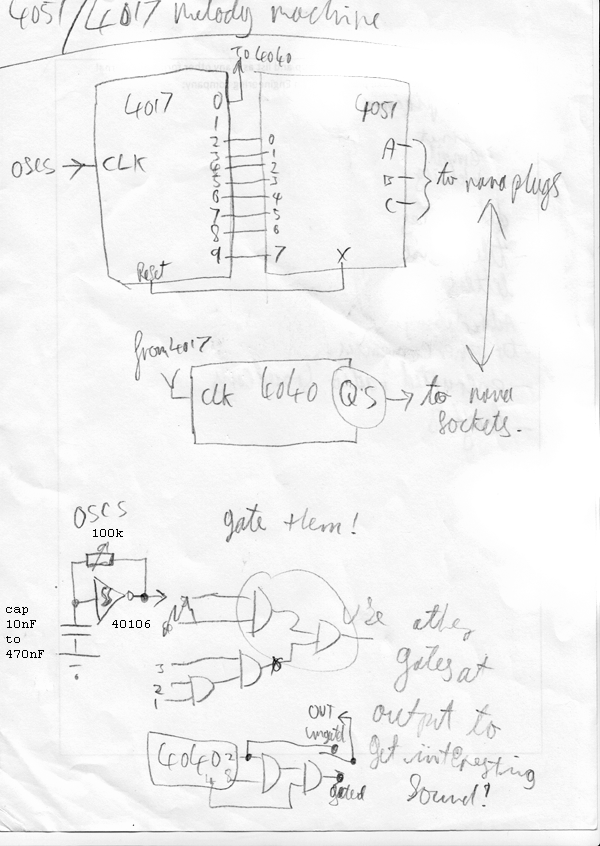 4051/4017 melody machine
TO 4040
4017
4051
0
1
2
3
4
5
6
7
8
9
0
1
2
3
4
5
6
7
OSCS
CLK
A
B
C
to nana plugs
Reset
X
from 4017
CLK 4040 Q'S
to nana
sockets.
OSCS
100k
gate them!
cap
10nF
to
470nF
40106
3
2
1
Use other
gates at
output to
get interesting
sound!
OUT
ungated
4040
2
4
8
gated